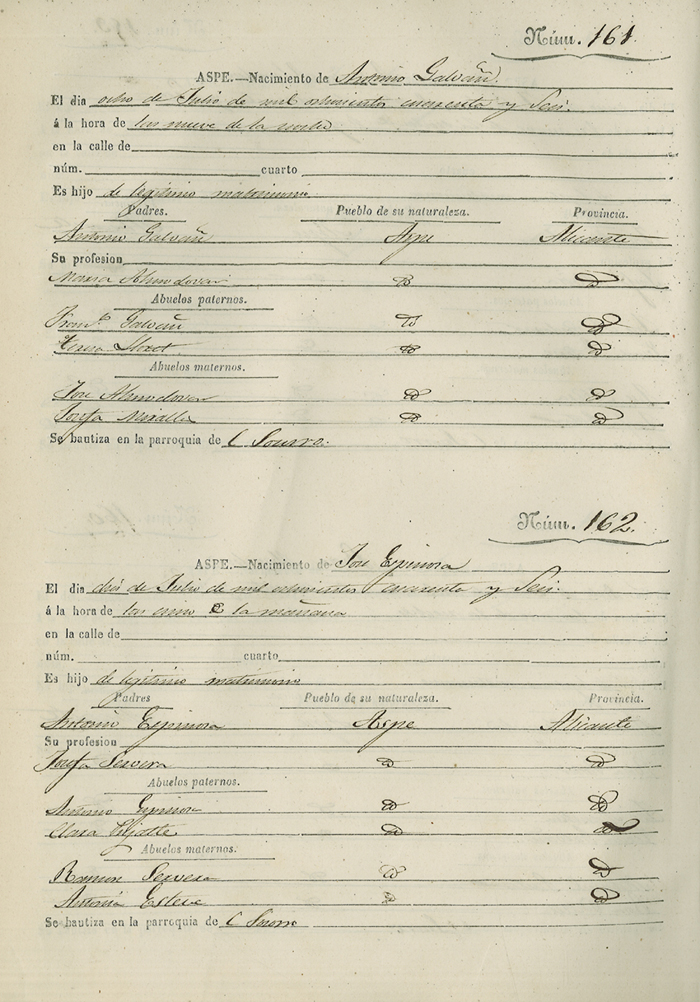 Núm. 161.
ASPE.—Nacimiento de Antonio Galvañ.
El dia ocho de Julio de mil ochocientos cuarenta y Seis.
á la hora de las nueve de la noche
en la calle de
núm. cuarto
Es hijo de legitimo matrimonio
Padres. Pueblo de su naturaleza. Provincia.
Antonio Galvañ Aspe Alicante
Su profesion
Maria Almodovar
Abuelos paternos.
Franco. Galvañ
Teresa
Abuelos maternos.
Jose Almodovar
Josefa Miralles
Se bautiza en la parroquia de
Núm. 162.
ASPE.—Nacimiento de Jose Espinosa
El dia de Julio de mil ochocientos cuarenta y Seis.
á la hora de las la mañana
en la calle de
núm. cuarto
Es hijo de legitimo matrimonio
Padres Pueblo de su naturaleza. Provincia.
Antonio Espinosa Aspe Alicante
Su profesion
Josefa Servera
Abuelos paternos.
Antonio Espinosa
Clara
Abuelos maternos.
Ramon Servera
Antonia Esteve
Se bautiza en la parroquia de